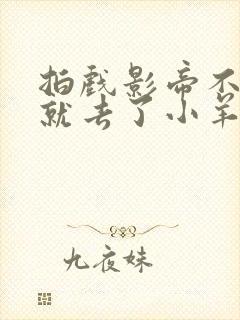 拍戏影帝不
就去了小羊
九夜妹